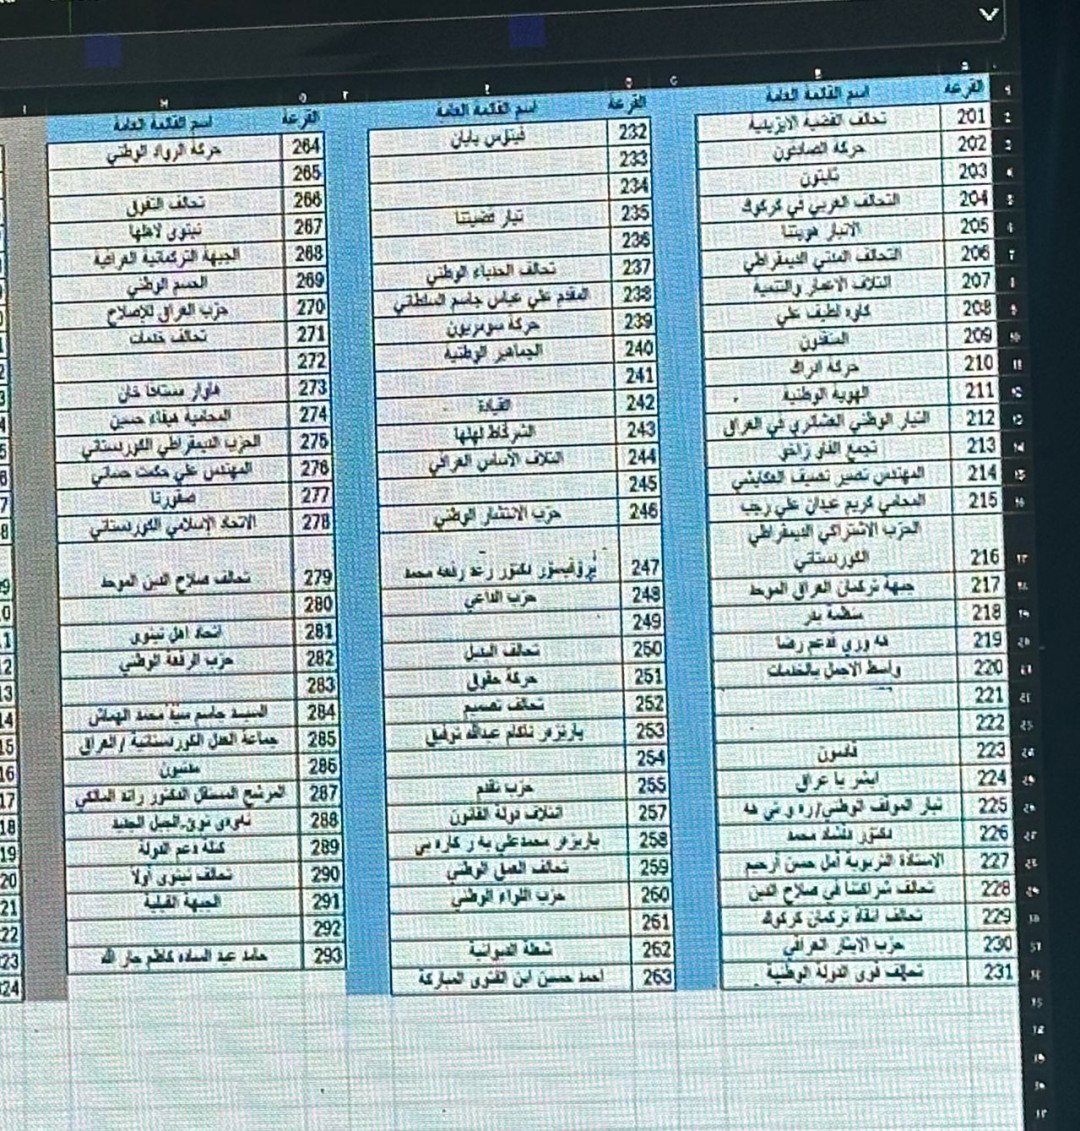 القرعة اسم القائمة العامة
201 تحالف القضية الايزيدية
202 حركة الصادقون
203 ثابتون
204 التحالف العربي في كركوك
205 الانبار هويتنا
206 التحالف المدني الديمقراطي
207 ائتلاف الاعمار والتنمية
208 كاوه لطيف علي
209 المنقذون
210 حركة ادراك
211 الهوية الوطنية
212 التيار الوطني العشائري في العراق
213 تجمع الفاو زاخو
214 المهندس نصير نصيف
215 المحامي كريم عبدان علي رجب
الحزب الاشتراكي الديمقراطي
216 الكوردستاني
217 جبهة تركمان العراق الموحد
218 منظمة بدر
219
220 واسط الاجمل بالخدمات
221
222
223 قادمون
224 ابشر يا عراق
225 تيار الموقف الوطني/
226 دكتور دلشاد محمد
227 الاستاذة التربوية أمل حسن
228 تحالف شراكتنا في صلاح الدين
229 تحالف انقاذ تركمان كركوك
230 حزب الايثار العراقي
231 تحالف قوى الدولة الوطنية
القرعة اسم القائمة العامة
232
233
234
235 تيار قضيتنا
236
237 تحالف الحدباء الوطني
238 المقدم علي عباس جاسم السلطاني
239 حركة سومريون
240 الجماهير الوطنية
241
242 القيادة
243 الشرقاط لهلها
244 ائتلاف الأساس العراقي
245
246 حزب الانتشار الوطني
247 بروفيسور دكتور رعد رفعه محمد
248 حزب الداعي
249
250 تحالف البديل
251 حركة حقوق
252 تحالف تصميم
253 بارێزەر ئاكام عبدالله توفيق
254
255 حزب تقدم
257 ائتلاف دولة القانون
258
259 تحالف العمق الوطني
260 حزب اللواء الوطني
261
262 شعلة الديوانية
263 احمد حسين ابن الفتوى المباركة
القرعة اسم القائمة العامة
264 حركة الرواد الوطني
265
266 تحالف التفوق
267 نينوى لاهلها
268 الجبهة التركمانية العراقية
269 الحسم الوطني
270 حزب العراق للإصلاح
271 تحالف خدمات
272
273 خان
274 المحامية هيفاء حسين
275 الحزب الديمقراطي الكوردستاني
276 المهندس علي حكمت
277 صقورنا
278 الاتحاد الإسلامي الكوردستاني
279 تحالف صلاح الدين الموحد
280
281 اتحاد اهل نينوى
282 حزب الرفعة الوطني
283
284 السيد جاسم سيد محمد
285 جماعة العدل الكوردستانية / العراق
286
287 المرشح المستقل الدكتور رائد المالكي
288 الجيل الجديد
289 كتلة دعم الدولة
290 تحالف نينوى أولا
291 الجبهة الفيلية
292
293 حامد عبد الساده كاظم جار الله